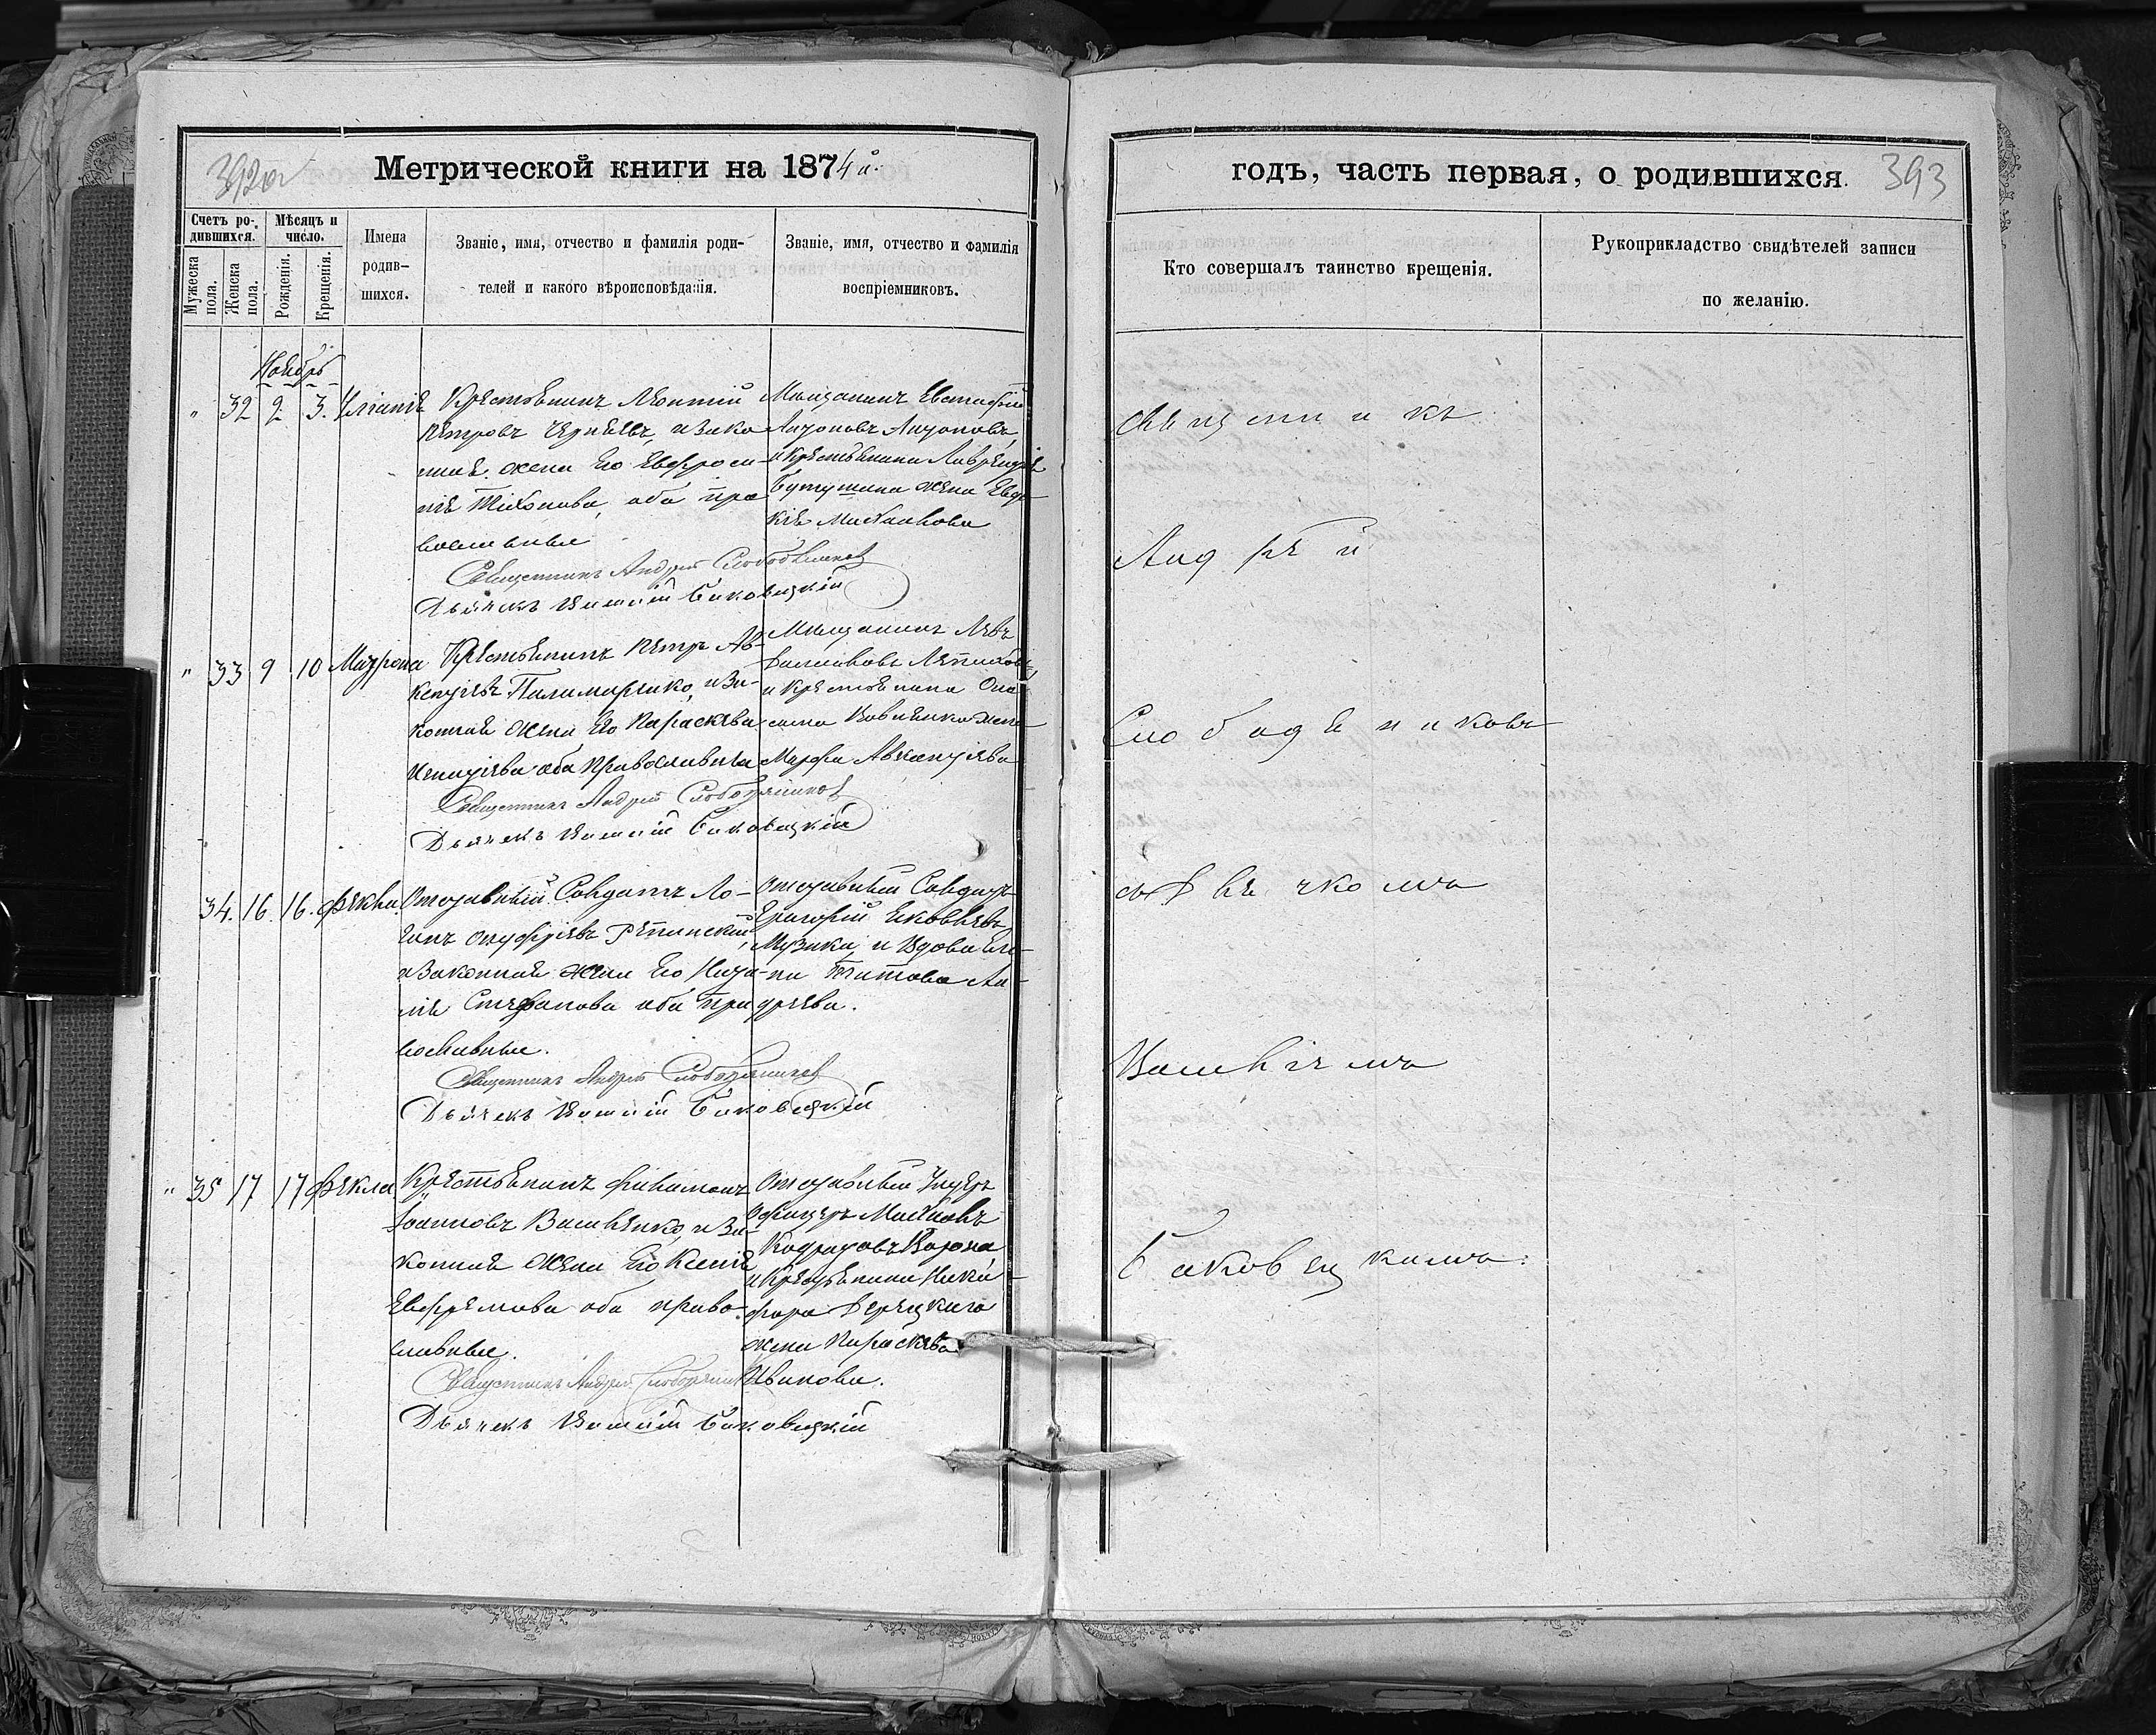 392об
Метрической книги на 1874й.
Счетъ ро-
дившихся.
Мѣсяцъ и
число.
Мужеска пола.
Женска пола.
Рожденія.
Крещенія.
Имена
родив-
шихся.
Званіе, имя, отчество и фамилія роди-
телей и какого вѣроисповѣданія.
Званіе, имя, отчество и фамилія
воспріемниковъ.
Ноябрь
" 32 2. 3. Уліанія
Крестьянинъ Леонтій
Петровъ и зако
нная жена его Евфроси-
нія Тихонова, оба пра
вославные
Священникъ Андрей Слободяников
Дьячекъ Василій Баковецкій
Мѣщанинъ Евстафій
Антоновъ Антоновъ
и крестьянина Лаврентія
жена Евдо
кія Михайлова
" 33 9 10 Матрона
Крестьянинъ Петръ Ав-
ксентіевъ Паламаренко, и за-
конная жена его Параскева
Игнатіева оба православные
Священникъ Андрей Слободяников
Дьячекъ Василій Баковецкій
Мѣщанинъ Левъ
и крестьянина
жена
Марфа Авксентіева
34. 16. 16. Фекла.
Отставный Солдатъ Ло-
гинъ Онуфріевъ Репинскій,
и законная жена его Ната-
лія Стефанова оба пра
вославные.
Священникъ Андрей Слободяников
Дьячекъ Василій Баковецкій
Отставный Солдатъ
Григорій Яковлевъ
Музыка, и вдова Еле-
на Титова Ан-
дреева.
" 35 17 17 Фекла
Крестьянинъ Филимонъ
Іоанновъ Василенко, и за-
конная жена его Ксенія
Ефремова оба право-
славные.
Священникъ Андрей Слободяников
Дьячекъ Василій Баковецкій
Отставный Унтеръ
офицеръ Михаилъ
Кодратовъ Ворона
и крестьянина Ники-
фора Терецкаго
жена Параскева
Иванова.
годъ, часть первая, о родившихся.
393
Кто совершалъ таинство крещенія.
Рукоприкладство свидѣтелей записи
по желанію.
Священникъ
Андрей
Слободяниковъ
съ дьячкомъ
Василіемъ
Баковецкимъ.